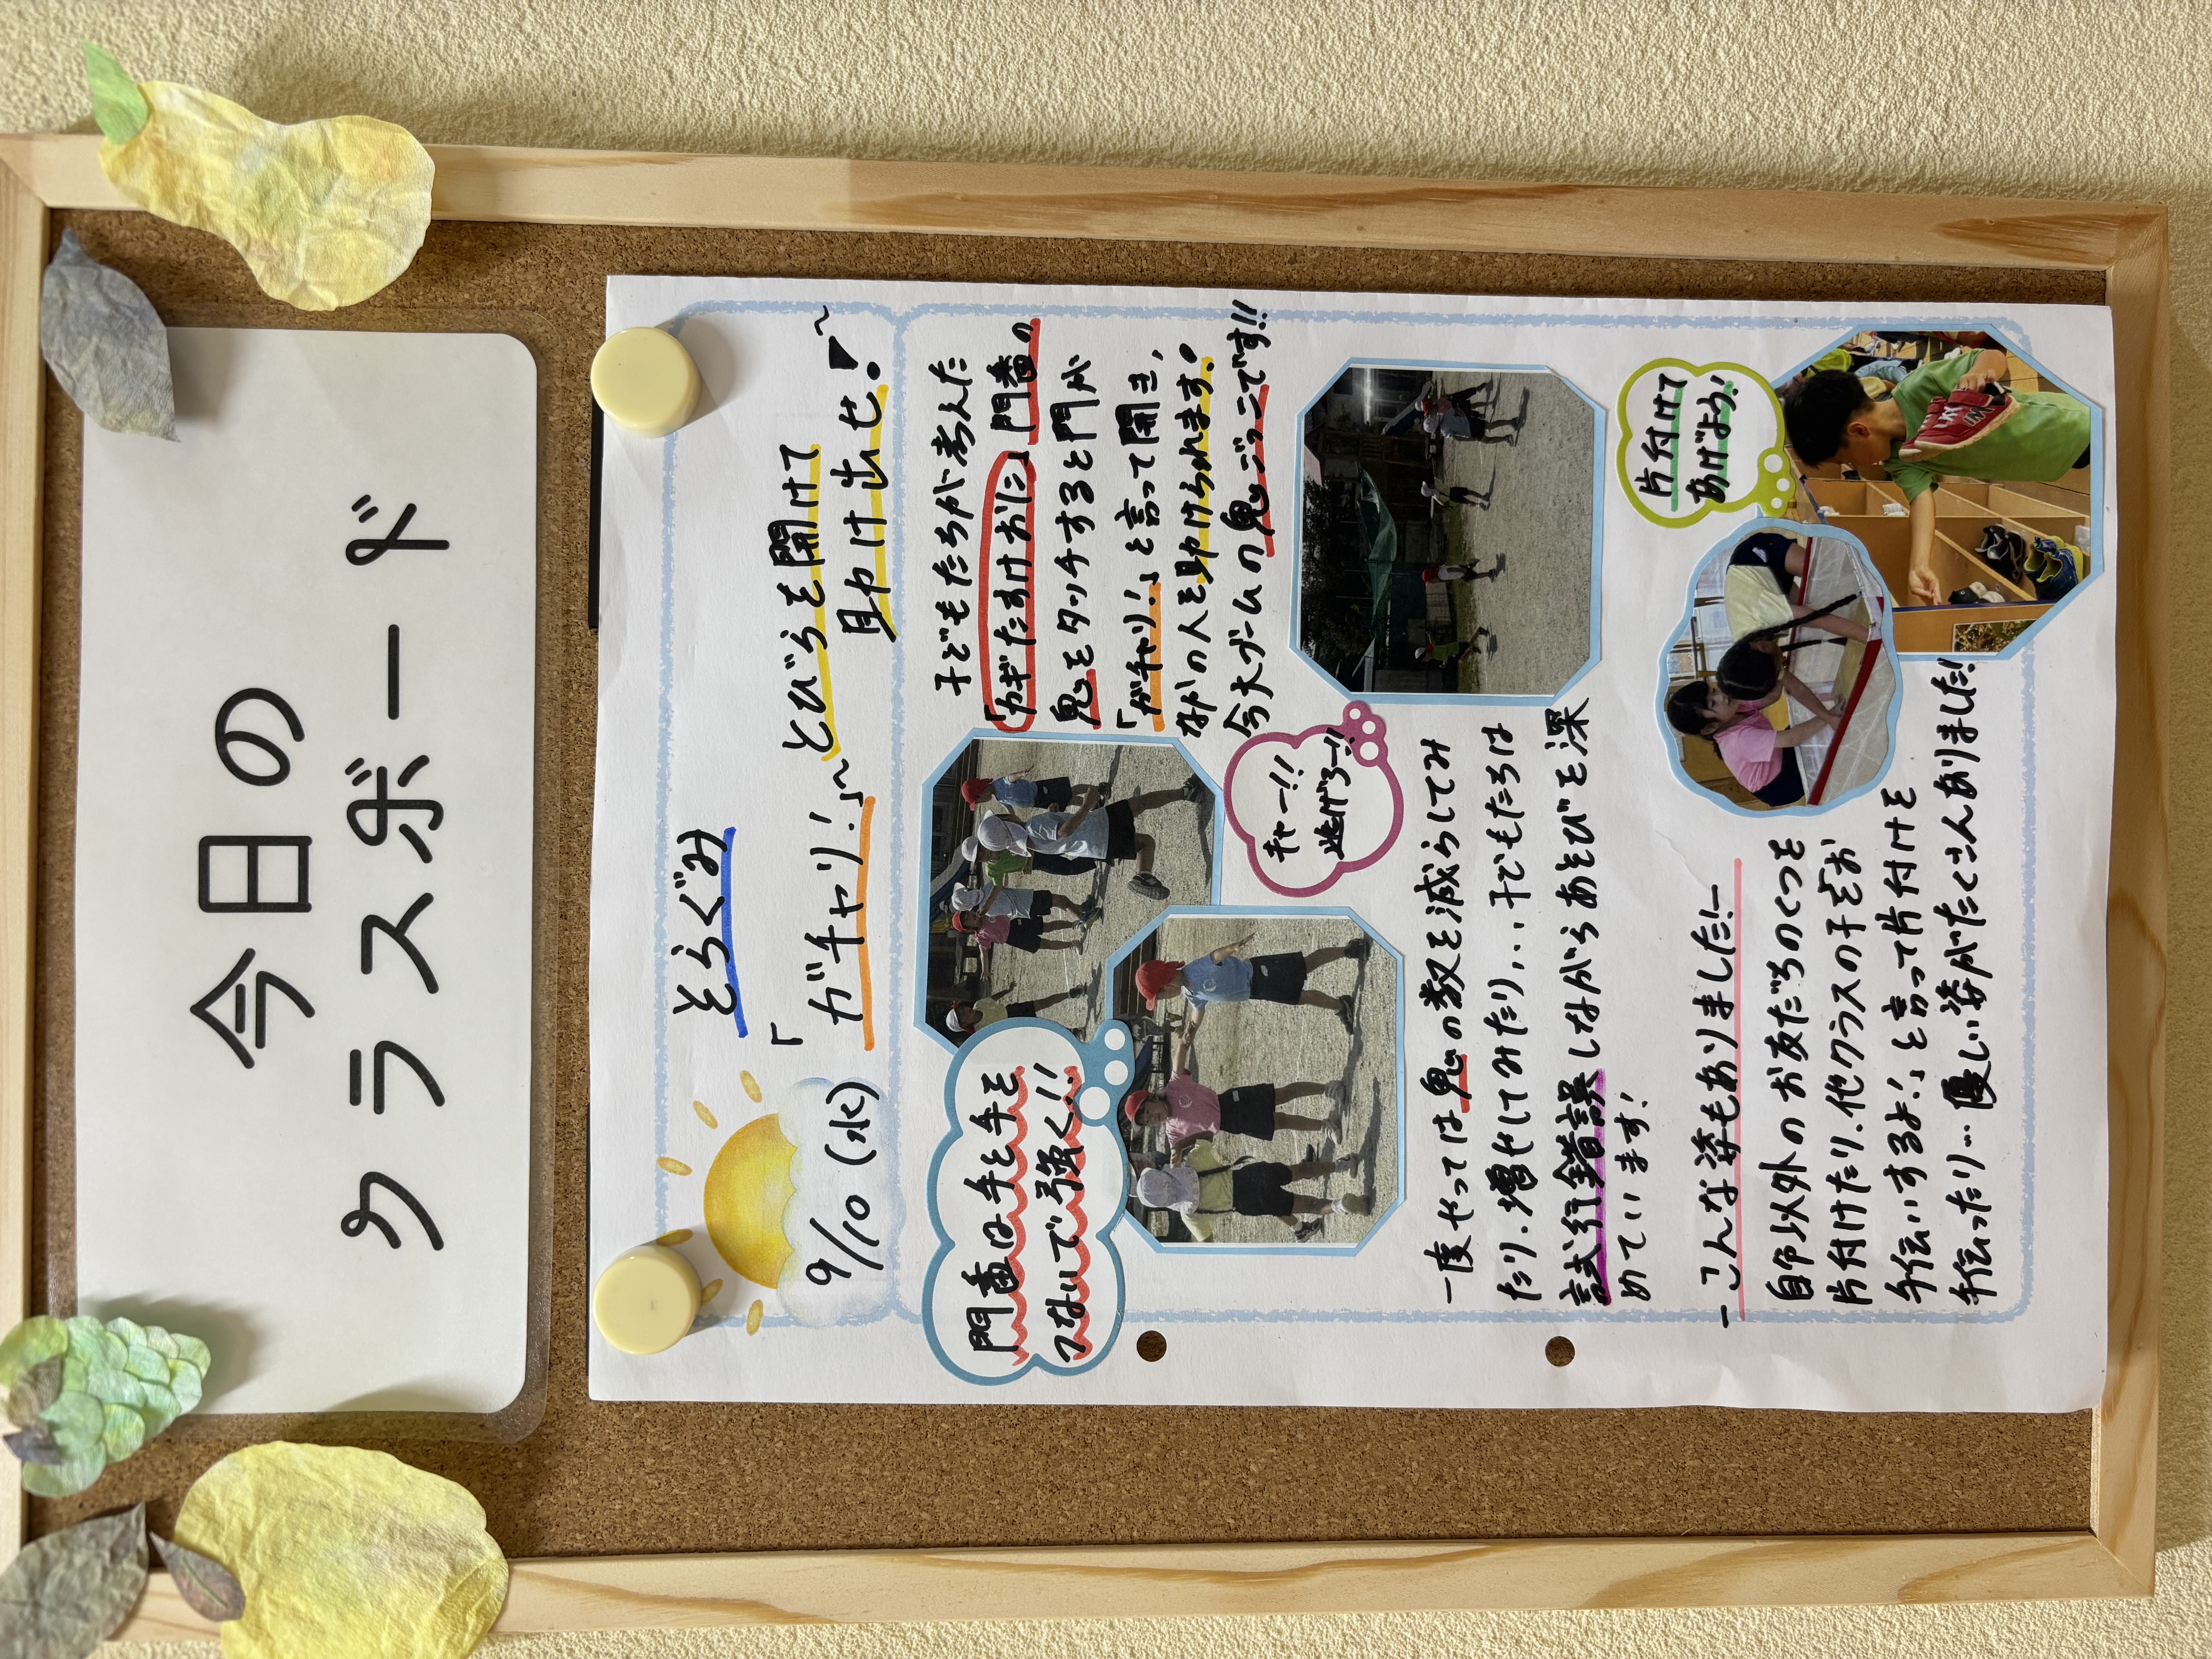 今日の
クラスボード
9/10(水)
そらぐみ
「ガチャリ!」~とびらを開けて
助け出せ!~
門番は手と手を
つないで強く!!
子どもたちが考えた
「カギたすけおに」門番の
鬼をタッチすると門が
「ガチャリ!」と言って開き、
なかの人を助けられます。
今大ブームの鬼ごっこです!!
キャー!!
逃げろー!!
一度やっては鬼の数を減らしてみ
たり、増やしてみたり、、、子どもたちは
試行錯誤しながらあそびを深
めています!
-こんな姿もありました!-
自分以外のお友だちのくつを
片付けたり、他クラスの子をお
手伝いするよ!」と言って片付けを
手伝ったり…優しい姿がたくさんありました!!
片付けて
あげよう!